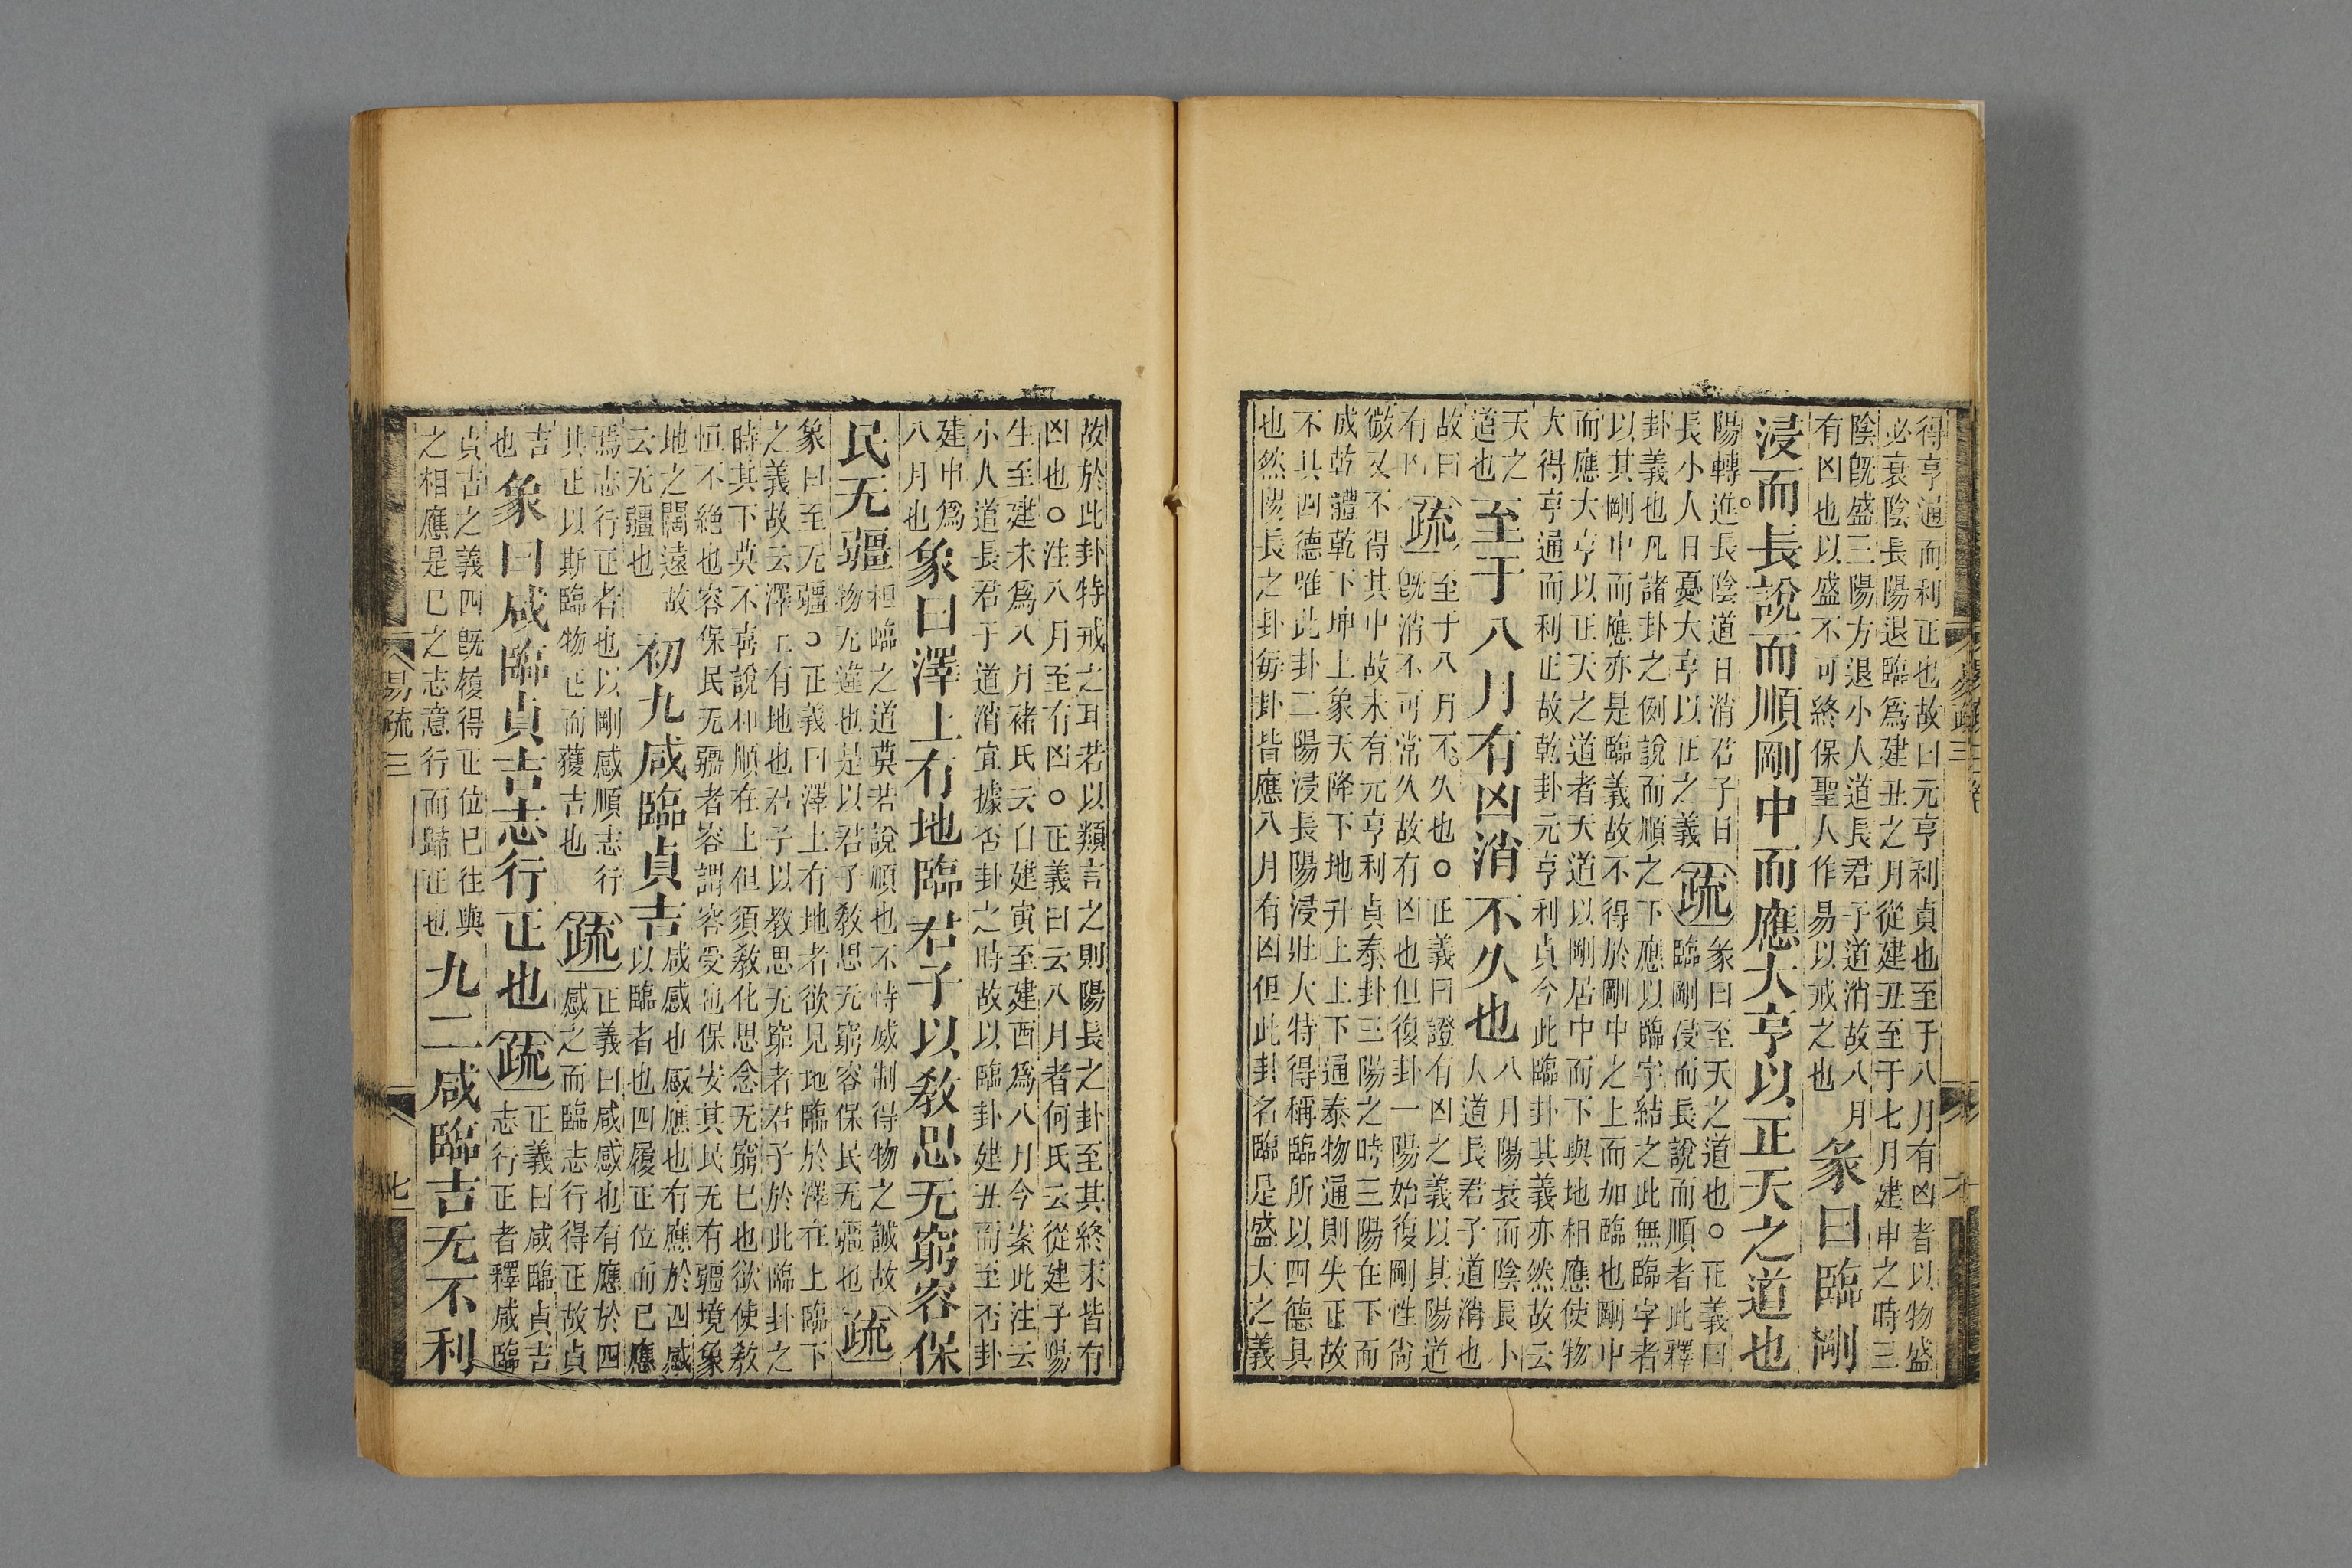 得亨通而利正也故曰元亨利貞也至于八月有凶者以物盛
必衰陰長陽退臨爲建丑之月從建丑至于七月建申之時三
陰旣盛三陽方退小人道長君子道消故八月
有凶也以盛不可終保聖人作易以戒之也
彖曰臨剛
浸而長說而順剛中而應大亨以正天之道也
陽轉進長陰道日消君子日
長小人日憂大亨以正之義
疏
彖曰至天之道也○正義曰
臨剛浸而長說而順者此釋
卦義也凡諸卦之例說而順之下應以臨字結之此無臨字者
以其剛中而應亦是臨義故不得於剛中之上而加臨也剛中
而應大亨以正天之道者天道以剛居中而下與地相應使物
大得亨通而利正故乾卦元亨利貞今此臨卦其義亦然故云
天之
道也
至于八月有凶消不久也
八月陽衰而陰長小
人道長君子道消也
故曰
有凶
疏
至于八月不久也○正義曰證有凶之義以其陽道
旣消不可常久故有凶也但復卦一陽始復剛性尙
微又不得其中故未有元亨利貞泰卦三陽之時三陽在下而
成乾體乾下坤上象天降下地升上上下通泰物通則失正故
不具四德唯此卦二陽浸長陽浸壯大特得稱臨所以四德具
也然陽長之卦每卦皆應八月有凶但此卦名臨是盛大之義
易疏三
故於此卦特戒之耳若以類言之則陽長之卦至其終末皆有
凶也○注八月至有凶○正義曰云八月者何氏云從建子陽
生至建未爲八月褚氏云自建寅至建酉爲八月今案此注云
小人道長君子道消宜據否卦之時故以臨卦建丑而至否卦
建申爲
八月也
象曰澤上有地臨君子以敎思无窮容保
民无疆
相臨之道莫若說順也不恃威制得物之誠故
物无違也是以君子敎思无窮容保民无疆也
疏
象曰至无疆○正義曰澤上有地者欲見地臨於澤在上臨下
之義故云澤上有地也君子以教思无窮者君子於此臨卦之
時其下莫不喜說和順在上但須敎化思念无窮已也欲使敎
恒不絶也容保民无疆者容謂容受也保安其民无有疆境象
地之闊遠故
云无疆也
初九咸臨貞吉
咸感也感應也有應於四感
以臨者也四履正位而已應
焉志行正者也以剛感順志行
其正以斯臨物正而獲吉也
疏
正義曰咸感也有應於四
感之而臨志行得正故貞
吉
也
象曰咸臨貞吉志行正也
疏
正義曰咸臨貞吉
志行正者釋咸臨
貞吉之義四旣履得正位已往與
之相應是已之志意行而歸正也
九二咸臨吉无不利
易疏三
七